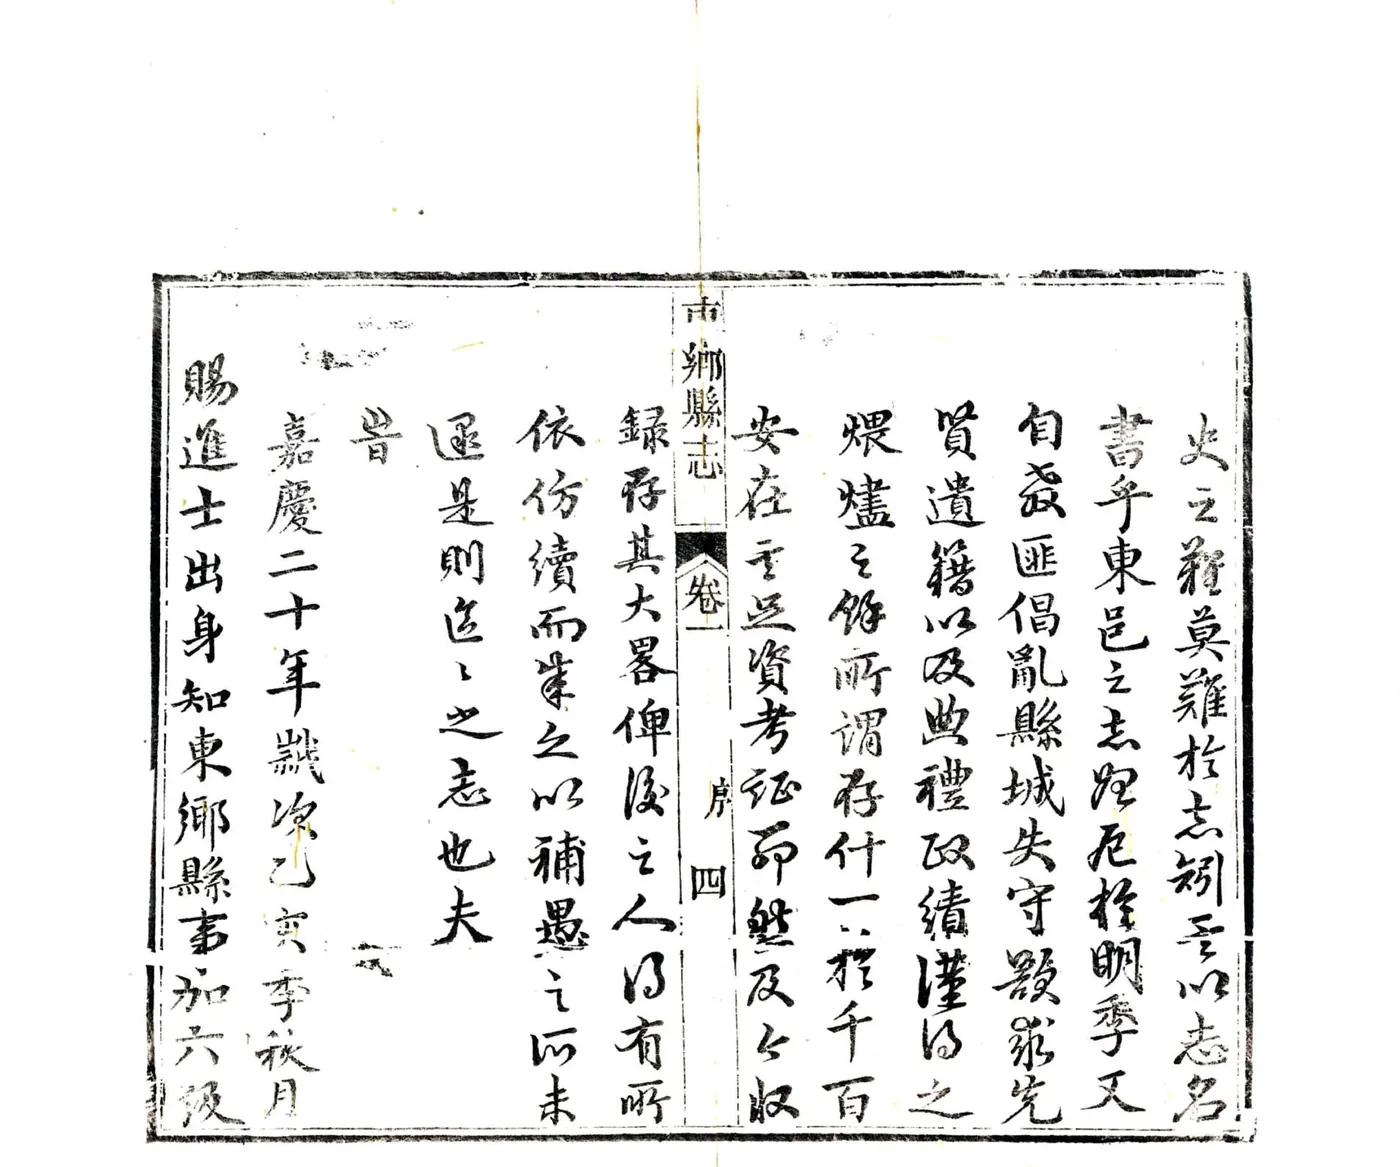 史之難莫難於志矧乎以志名
書乎東邑之志既厄於明季又
自教匪倡亂縣城失守欲求先
賢遺籍以及典禮政績僅得之
煨燼之餘所謂存什一於千百
安在乎足資考証耶然及今收
東鄉縣志
卷一
序
四
録存其大畧俾後之人得有所
依仿續而葉之以補愚之所未
逮是則區々之志也夫
旹
嘉慶二十年歲次乙亥季秋月
賜進士出身知東鄉縣事加六級